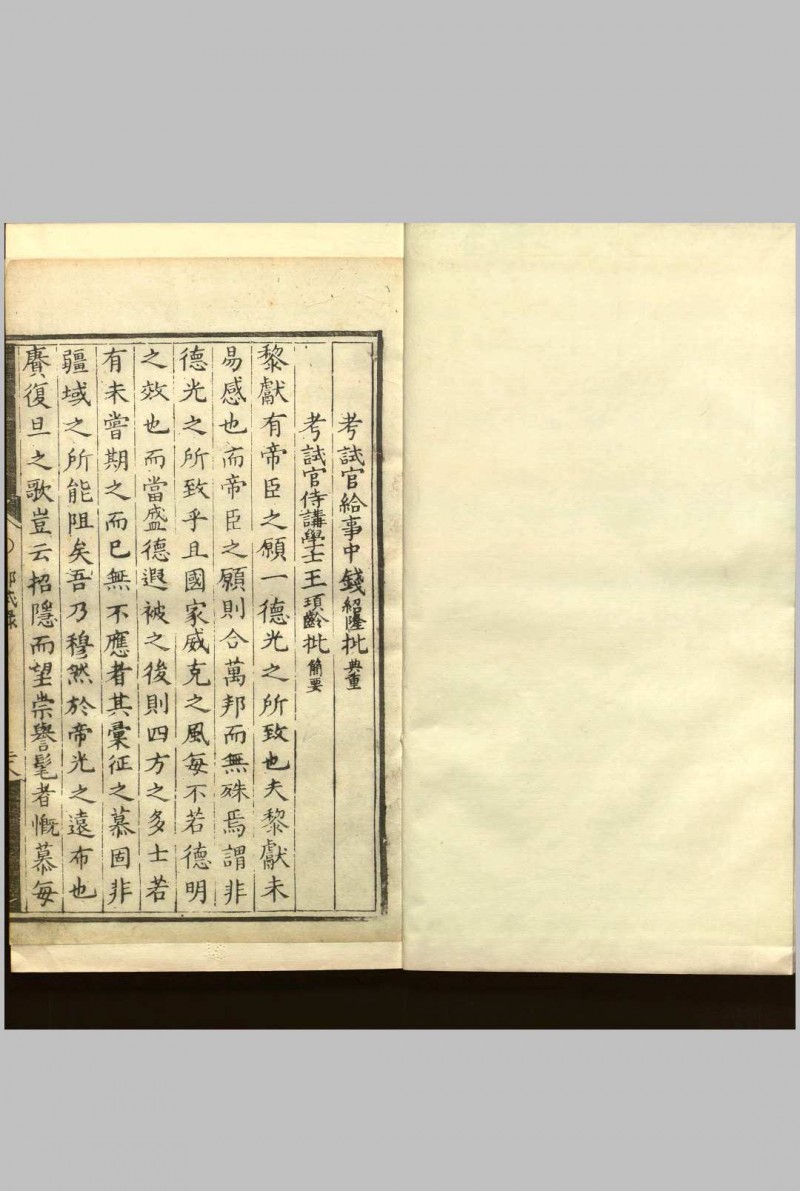 考試官給事中錢紹隆批典重
考試官侍講學士王項齡批簡要
黎獻有帝臣之願一德光之所致也夫黎獻未
易感也而帝臣之願則合萬邦而無殊焉謂非
德光之所致乎且國家威克之風每不若德明
之效也而當盛德遐被之後則四方之多士若
有未嘗期之而已無不應者其彙征之慕固非
疆域之所能阻矣吾乃穆然於帝光之遠布也
賡復旦之歌豈云招隱而望崇譽髦者慨慕每